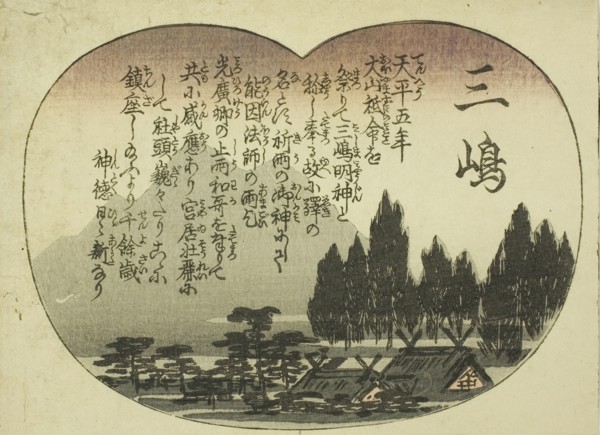 三嶋
天平五年
大山祇命を
祭りて三嶋明神と
称し奉る故に驛の
名とす祈雨の御神にして
能因法師の雨乞
光廣卿の止雨和哥を奉りて
共に感應あり宮居壮麗に
して社頭巍々たり
鎮座しより千餘歳
神徳日々に新なり